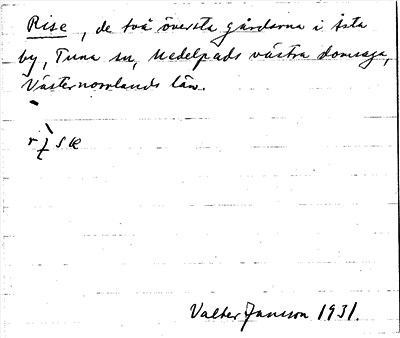 Rise, de två översta gårdarna i Åsta
by, Tuna sn, Medelpads västra domsaga,
Västernorrlands län.
Valter Jansson 1931.